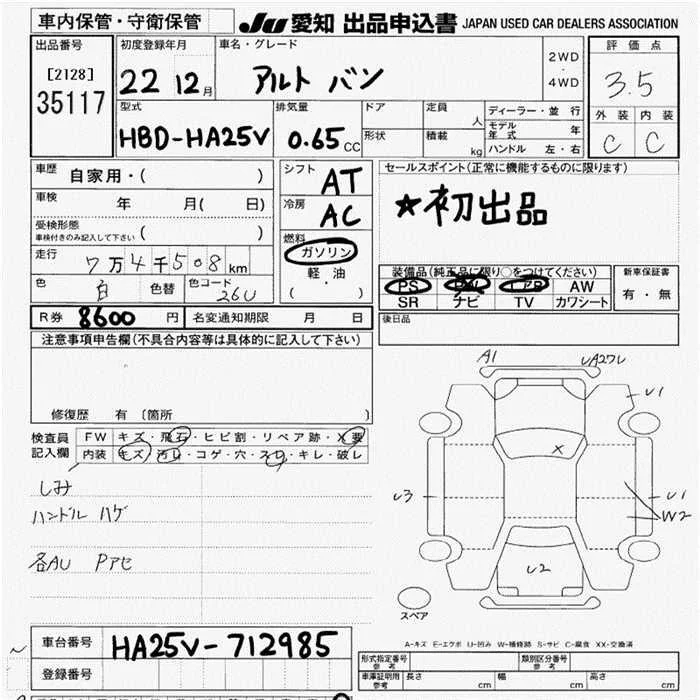 車内保管・守衛保管
JU 愛知 出品申込書 JAPAN USED CAR DEALERS ASSOCIATION
出品番号
[2128]
35117
初度登録年月
22 12月
車名・グレード
アルト バン
2WD
・
4WD
評価点
3.5
外装 内装
C C
型式
HBD-HA25V
排気量
0.65 CC
ドア
形状
定員 人
積載 kg
ディーラー・並行
モデル年式 年
ハンドル 左・右
車歴
自家用・( )
車検
年 月( 日)
受検形態
車検付きのみ記入して下さい ( )
走行
7万4千508km
色 白 色替 色コード 26U
R券 8600 円 名変通知期限 月 日
シフト
AT
冷房
AC
燃料
ガソリン
軽・油
( )
セールスポイント(正常に機能するものに限ります)
★初出品
装備品(純正品に限り○をつけてください)
PS AW
SR ナビ TV カワシート
新車保証書
有・無
後日品
注意事項申告欄(不具合内容等は具体的に記入して下さい)
修復歴 有 〔箇所 〕
検査員
記入欄
FW キズ・飛石・ヒビ割・リペア跡・X要
内装 キズ・汚レ・コゲ・穴・スレ・キレ・破レ
しみ
ハンドル ハゲ
各AU Pアセ
A1
U1
X
U3
U1
W2
U2
スペア
A-キズ E-エクボ U-凹み W-補修跡 S-サビ C-腐食 XX-交換済
車台番号 HA25V-712985
登録番号
形式指定番号
参考
類別区分番号
参考
車庫証明用
参考
長さ cm 幅 cm 高さ cm